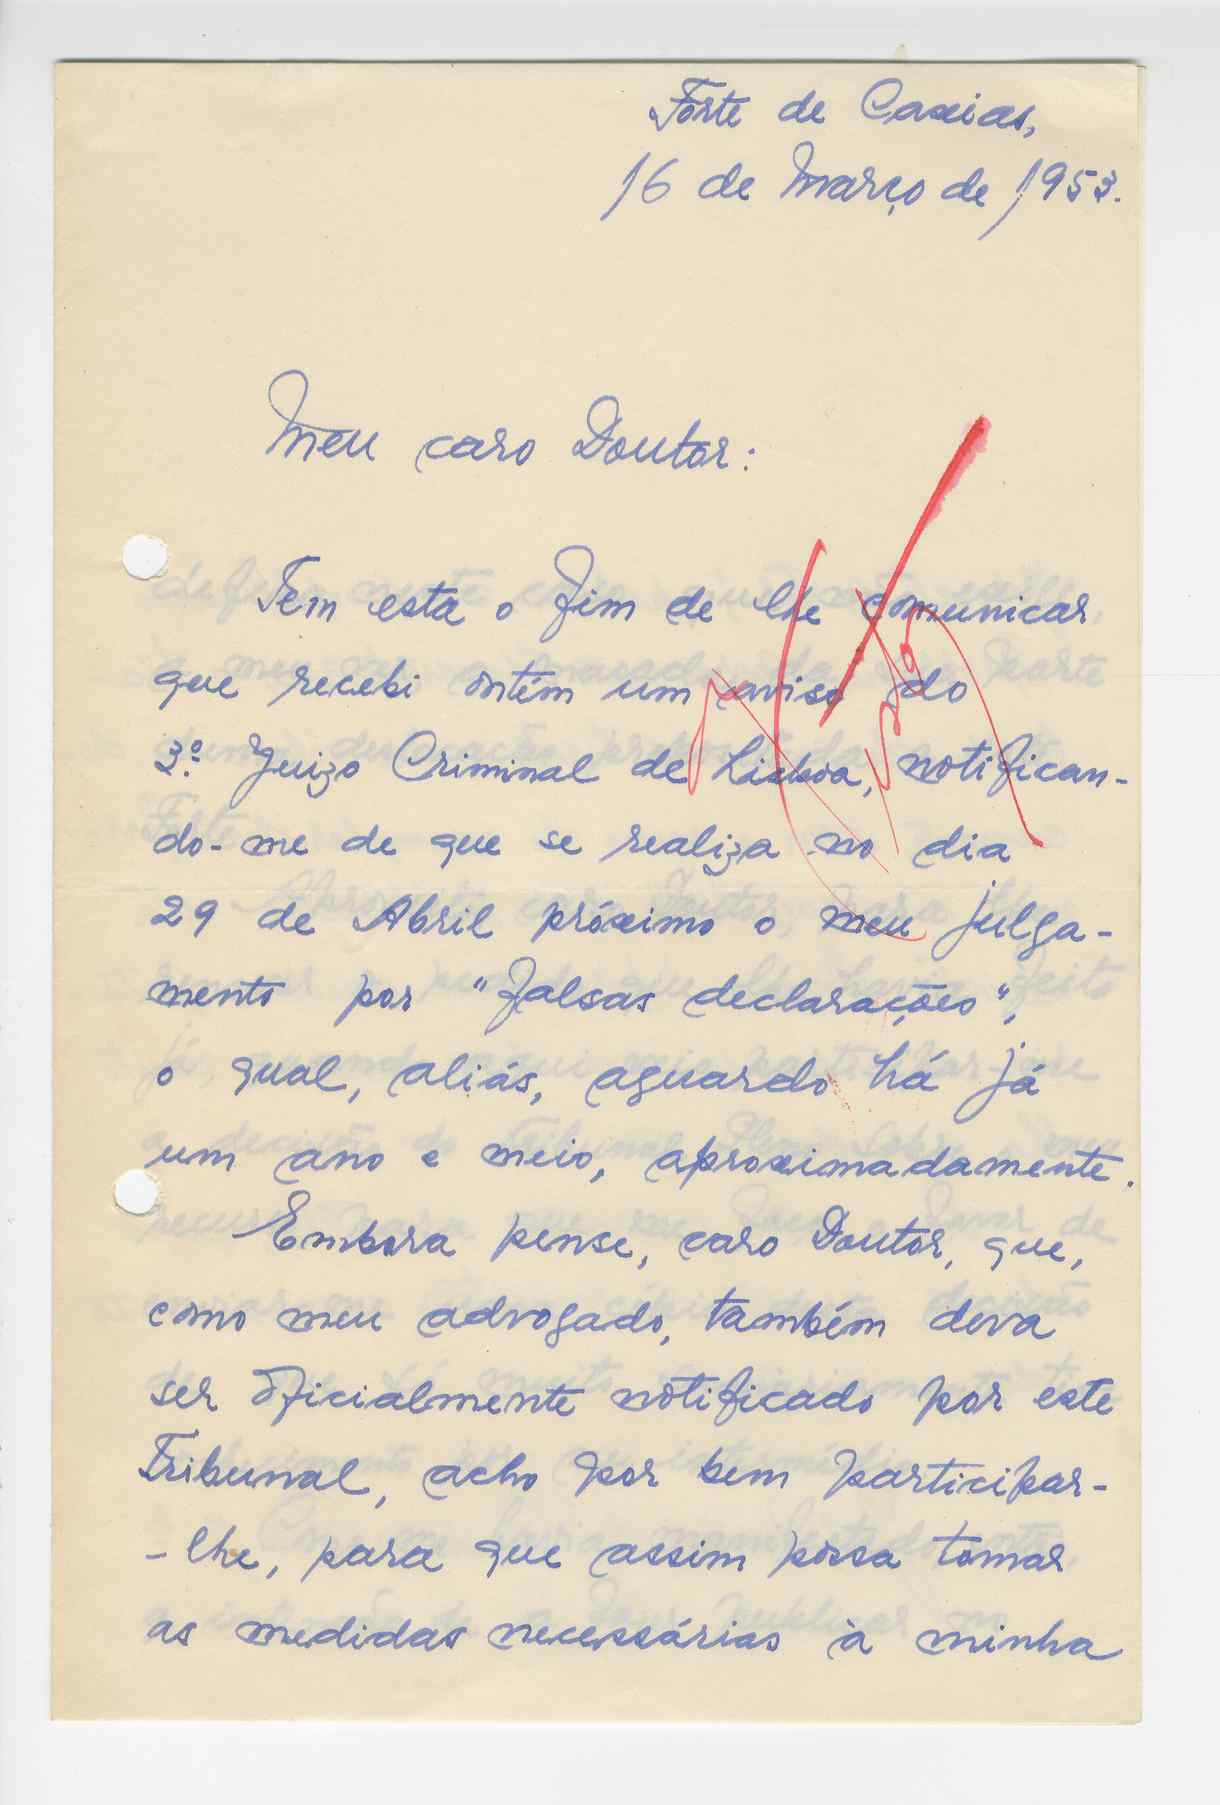 Forte de Caxias,
16 de Março de 1953.
Meu caro Doutor:
Tem esta o fim de lhe comunicar
que recebi ontém um aviso do
3º. Juizo Criminal de Lisboa, notifican-
do-me de que se realiza no dia
29 de Abril próximo o meu julga-
mento por "falsas declarações",
o qual, aliás, aguardo há já
um ano e meio, aproximadamente.
Embora pense, caro Doutor, que,
como meu advogado, também deva
ser oficialmente notificado por este
Tribunal, acho por bem participar-
-lhe, para que assim possa tomar
as medidas necessárias à minha